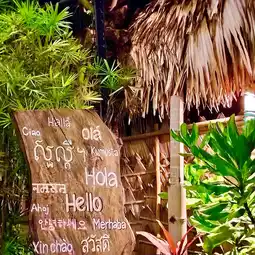 Hallå
Ciao Olá
សួស្តី។ Kumusta
नमस्ते Hola
Ahoj Hello
안녕하세요 Merhaba
Xin chào สวัสดี